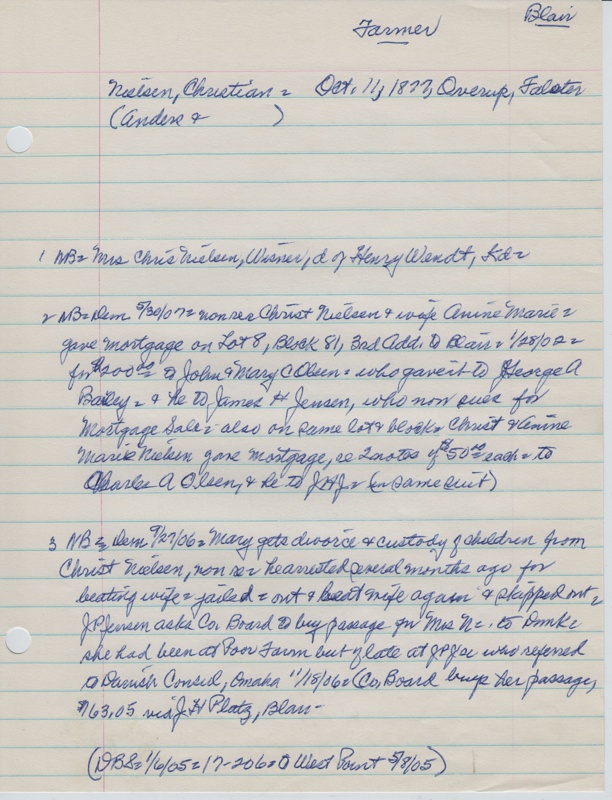 Farmer
Blair
Nielsen, Christian = Oct. 11, 1877, Overup, Falster
(Anders & )
1 NB = Mrs Chris Nielsen, Wisner, d of Henry Wendt, Kd =
2 NB = Dem 5/30/07 = non res Christ Nielsen & wife Anine Marie =
gave mortgage on Lot 8, Block 81, 3rd Add. to Blair = 1/28/02 =
for $200.00 = to John & Mary C Olsen = who gave it to George A
Bailey = & he to James H Jensen, who now sues for
Mortgage Sale = also on same lot & block = Christ & Anine
Marie Nielsen gave mortgage, re 2 notes of $50.00 each = to
Charles A Olsen, & he to JHJ = (in same suit)
3 NB = Dem 9/27/06 = Mary gets divorce & custody of children from
Christ Nielsen, non re = he arrested several months ago for
beating wife = jailed = out & beat wife again & skipped out =
JP Jensen asks Co. Board to buy passage for Mrs N = to Dmk =
she had been at Poor Farm but of late at JPJs who referred
to Danish Consul, Omaha 11/18/06 = Co. Board buys her passage,
$63.05 via J H Platz, Blair -
(DBS = 1/6/05 = 17-206 = @ West Point 5/8/05)